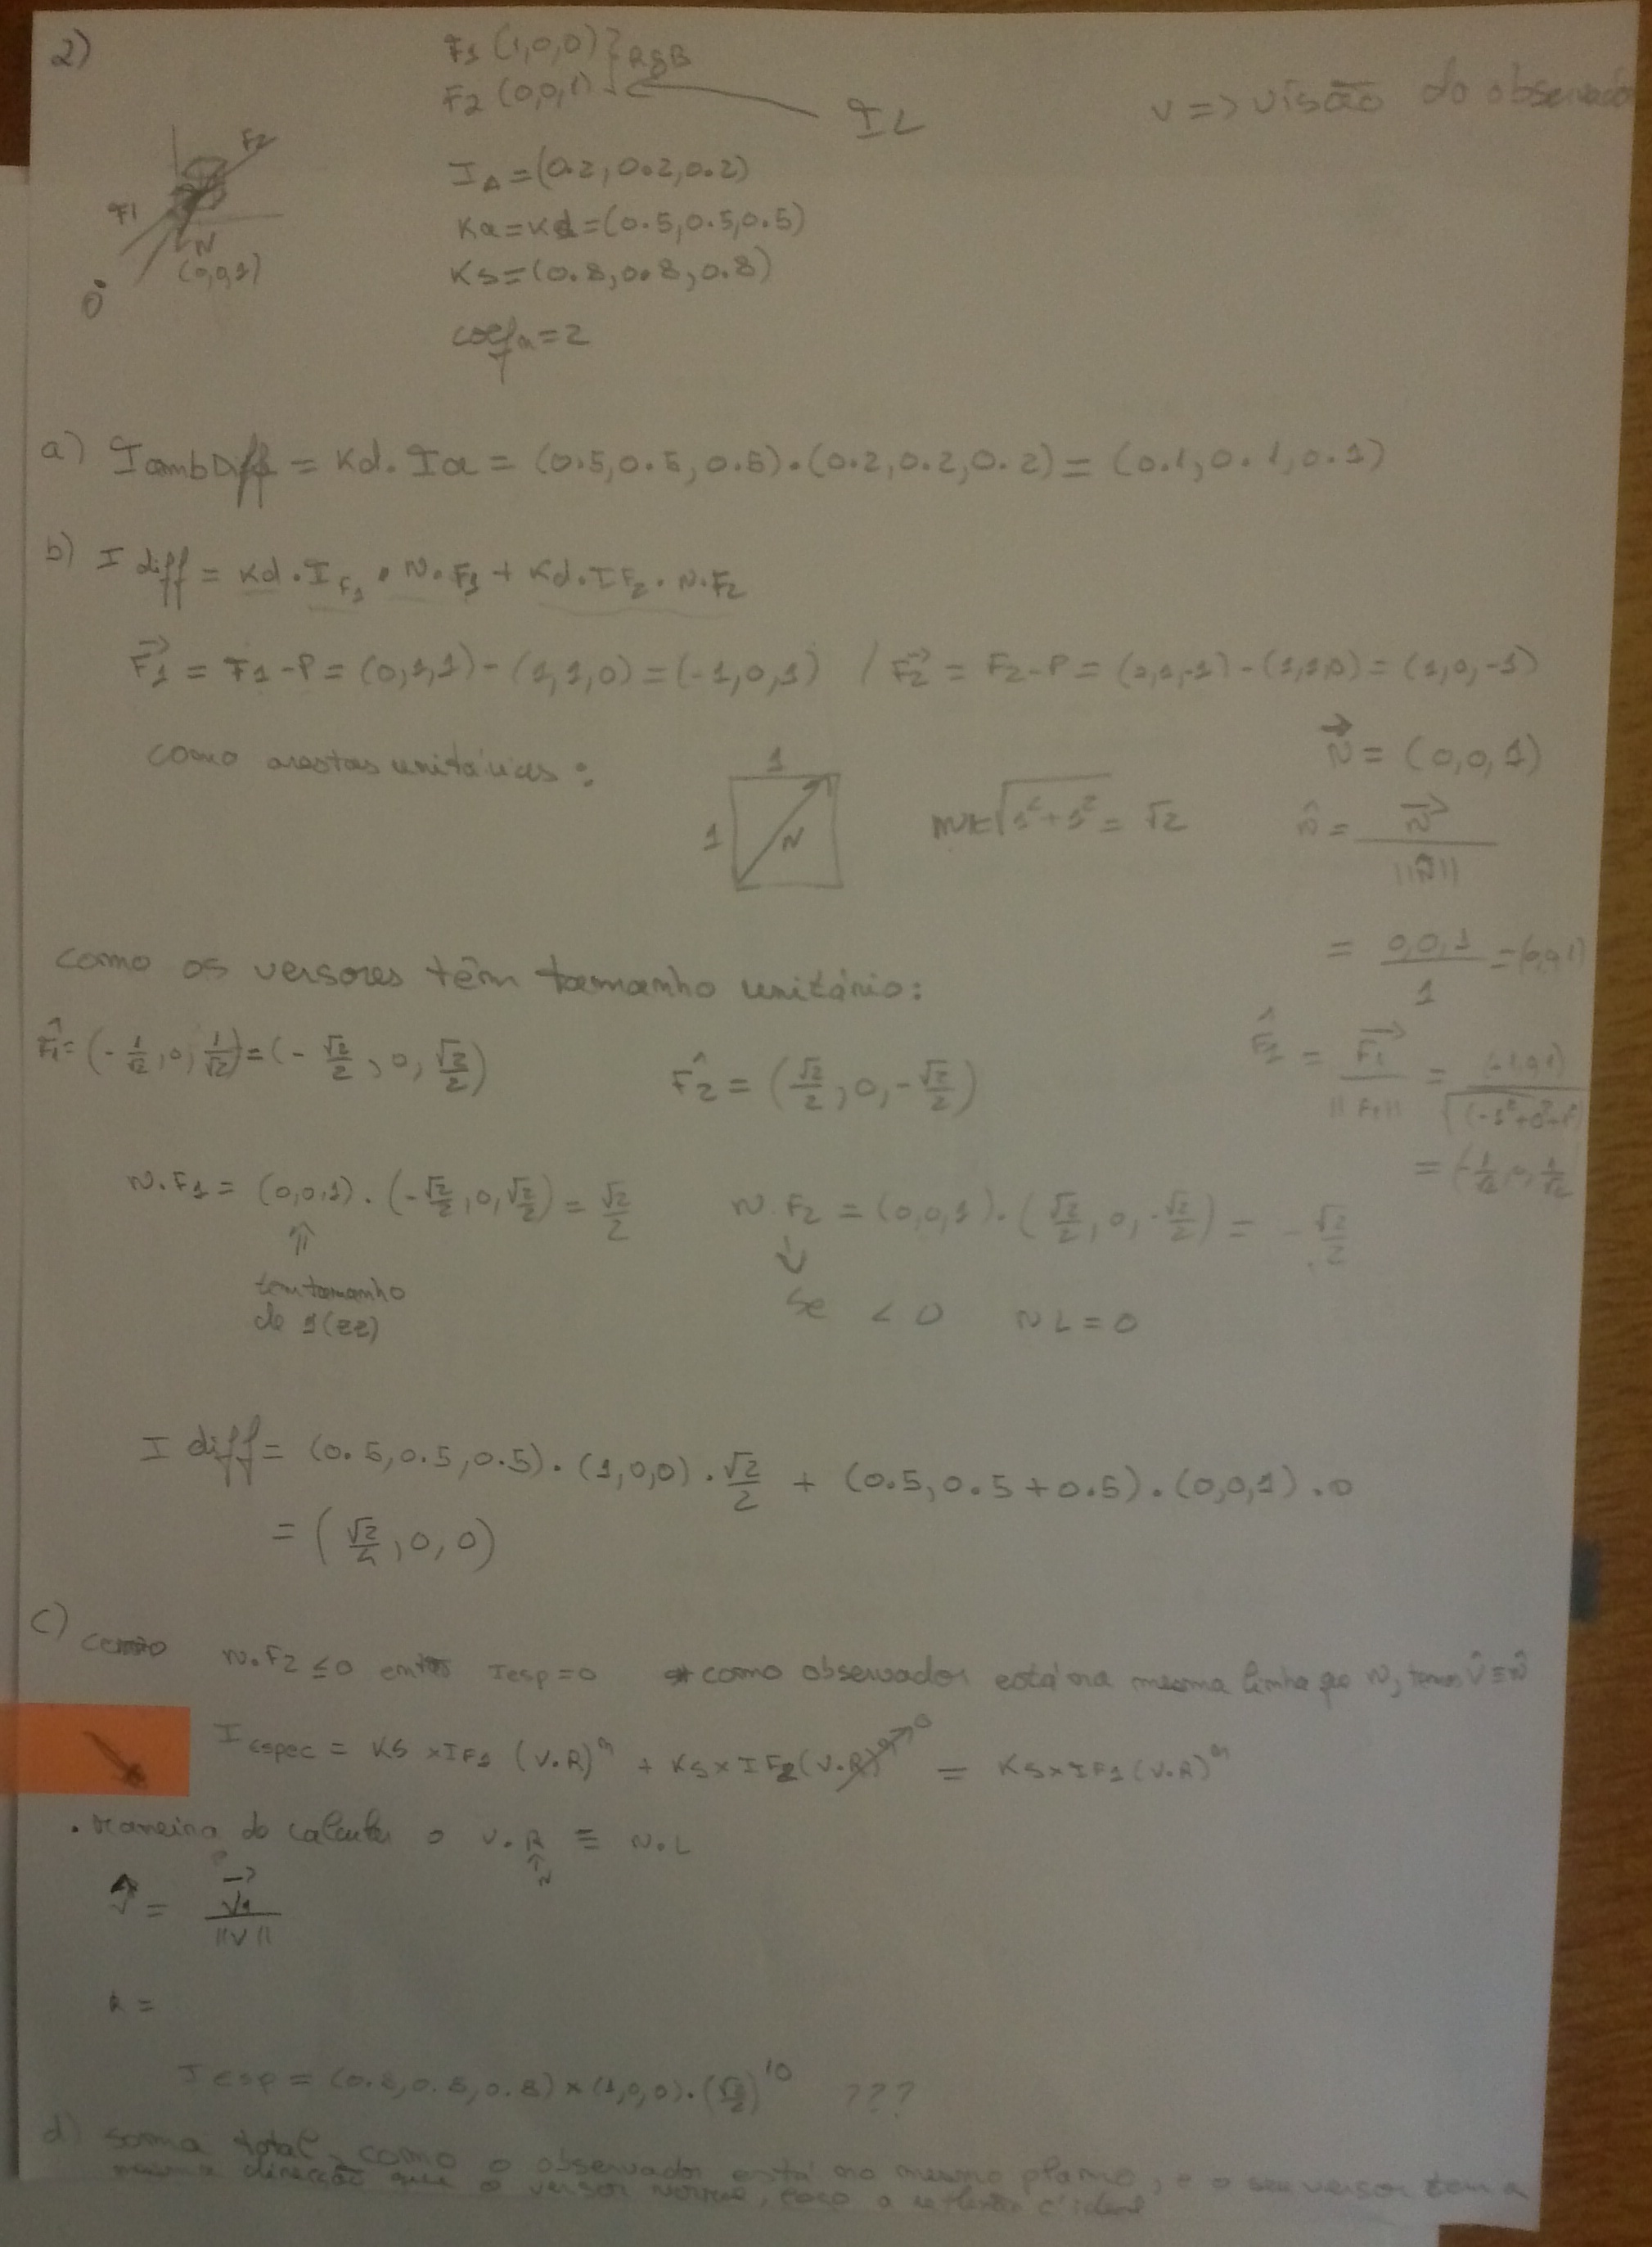 2)
F1 (1,0,0) } RGB
F2 (0,0,1)
IL
V => visão do observador
F2
F1
N
(0,0,1)
O
IA = (0.2, 0.2, 0.2)
Ka = Kd = (0.5, 0.5, 0.5)
Ks = (0.8, 0.8, 0.8)
coef n = 2
a) IambDiff = Kd . Ia = (0.5, 0.5, 0.5) . (0.2, 0.2, 0.2) = (0.1, 0.1, 0.1)
b) I diff = Kd . I F1 . N.F1 + Kd . I F2 . N.F2
F1→ = F1 - P = (0,1,1) - (1,1,0) = (-1,0,1) / F2→ = F2 - P = (2,1,-1) - (1,1,0) = (1,0,-1)
como arestas unitárias :
1
1
N
√1²+1² = √2
N→ = (0,0,1)
n̂ = N→ / ||N||
= 0,0,1 / 1 = (0,0,1)
como os versores têm tamanho unitário:
F̂1 = (-1/√2, 0, 1/√2) = (-√2/2, 0, √2/2)
F̂2 = (√2/2, 0, -√2/2)
F̂1 = F1→ / ||F1|| = (-1,0,1) / √(-1²+0²+1²)
= (-1/√2, 0, 1/√2
N.F1 = (0,0,1) . (-√2/2, 0, √2/2) = √2/2
N.F2 = (0,0,1) . (√2/2, 0, -√2/2) = -√2/2
tem tamanho
de 1(zz)
Se < 0 NL = 0
I diff = (0.5, 0.5, 0.5) . (1,0,0) . √2/2 + (0.5, 0.5 + 0.5) . (0,0,1) . 0
= (√2/4, 0, 0)
c) como N.F2 ≤ 0 então Iesp = 0 * como observador está na mesma linha que N, temos V̂ ≡ N̂
I espec = Ks x IF1 (V.R)ⁿ + Ks x IF2 (V.R)ⁿ → 0 = Ks x IF1 (V.R)ⁿ
. maneira de calcular o V.R ≡ N.L
N
V̂ = V→ / ||V||
R =
I esp = (0.8, 0.8, 0.8) x (1,0,0) . (√2/2)¹⁰ ???
d) soma total, como o observador está no mesmo plano, e o seu versor tem a
mesma direcção que o versor normal, logo a reflexão é ideal